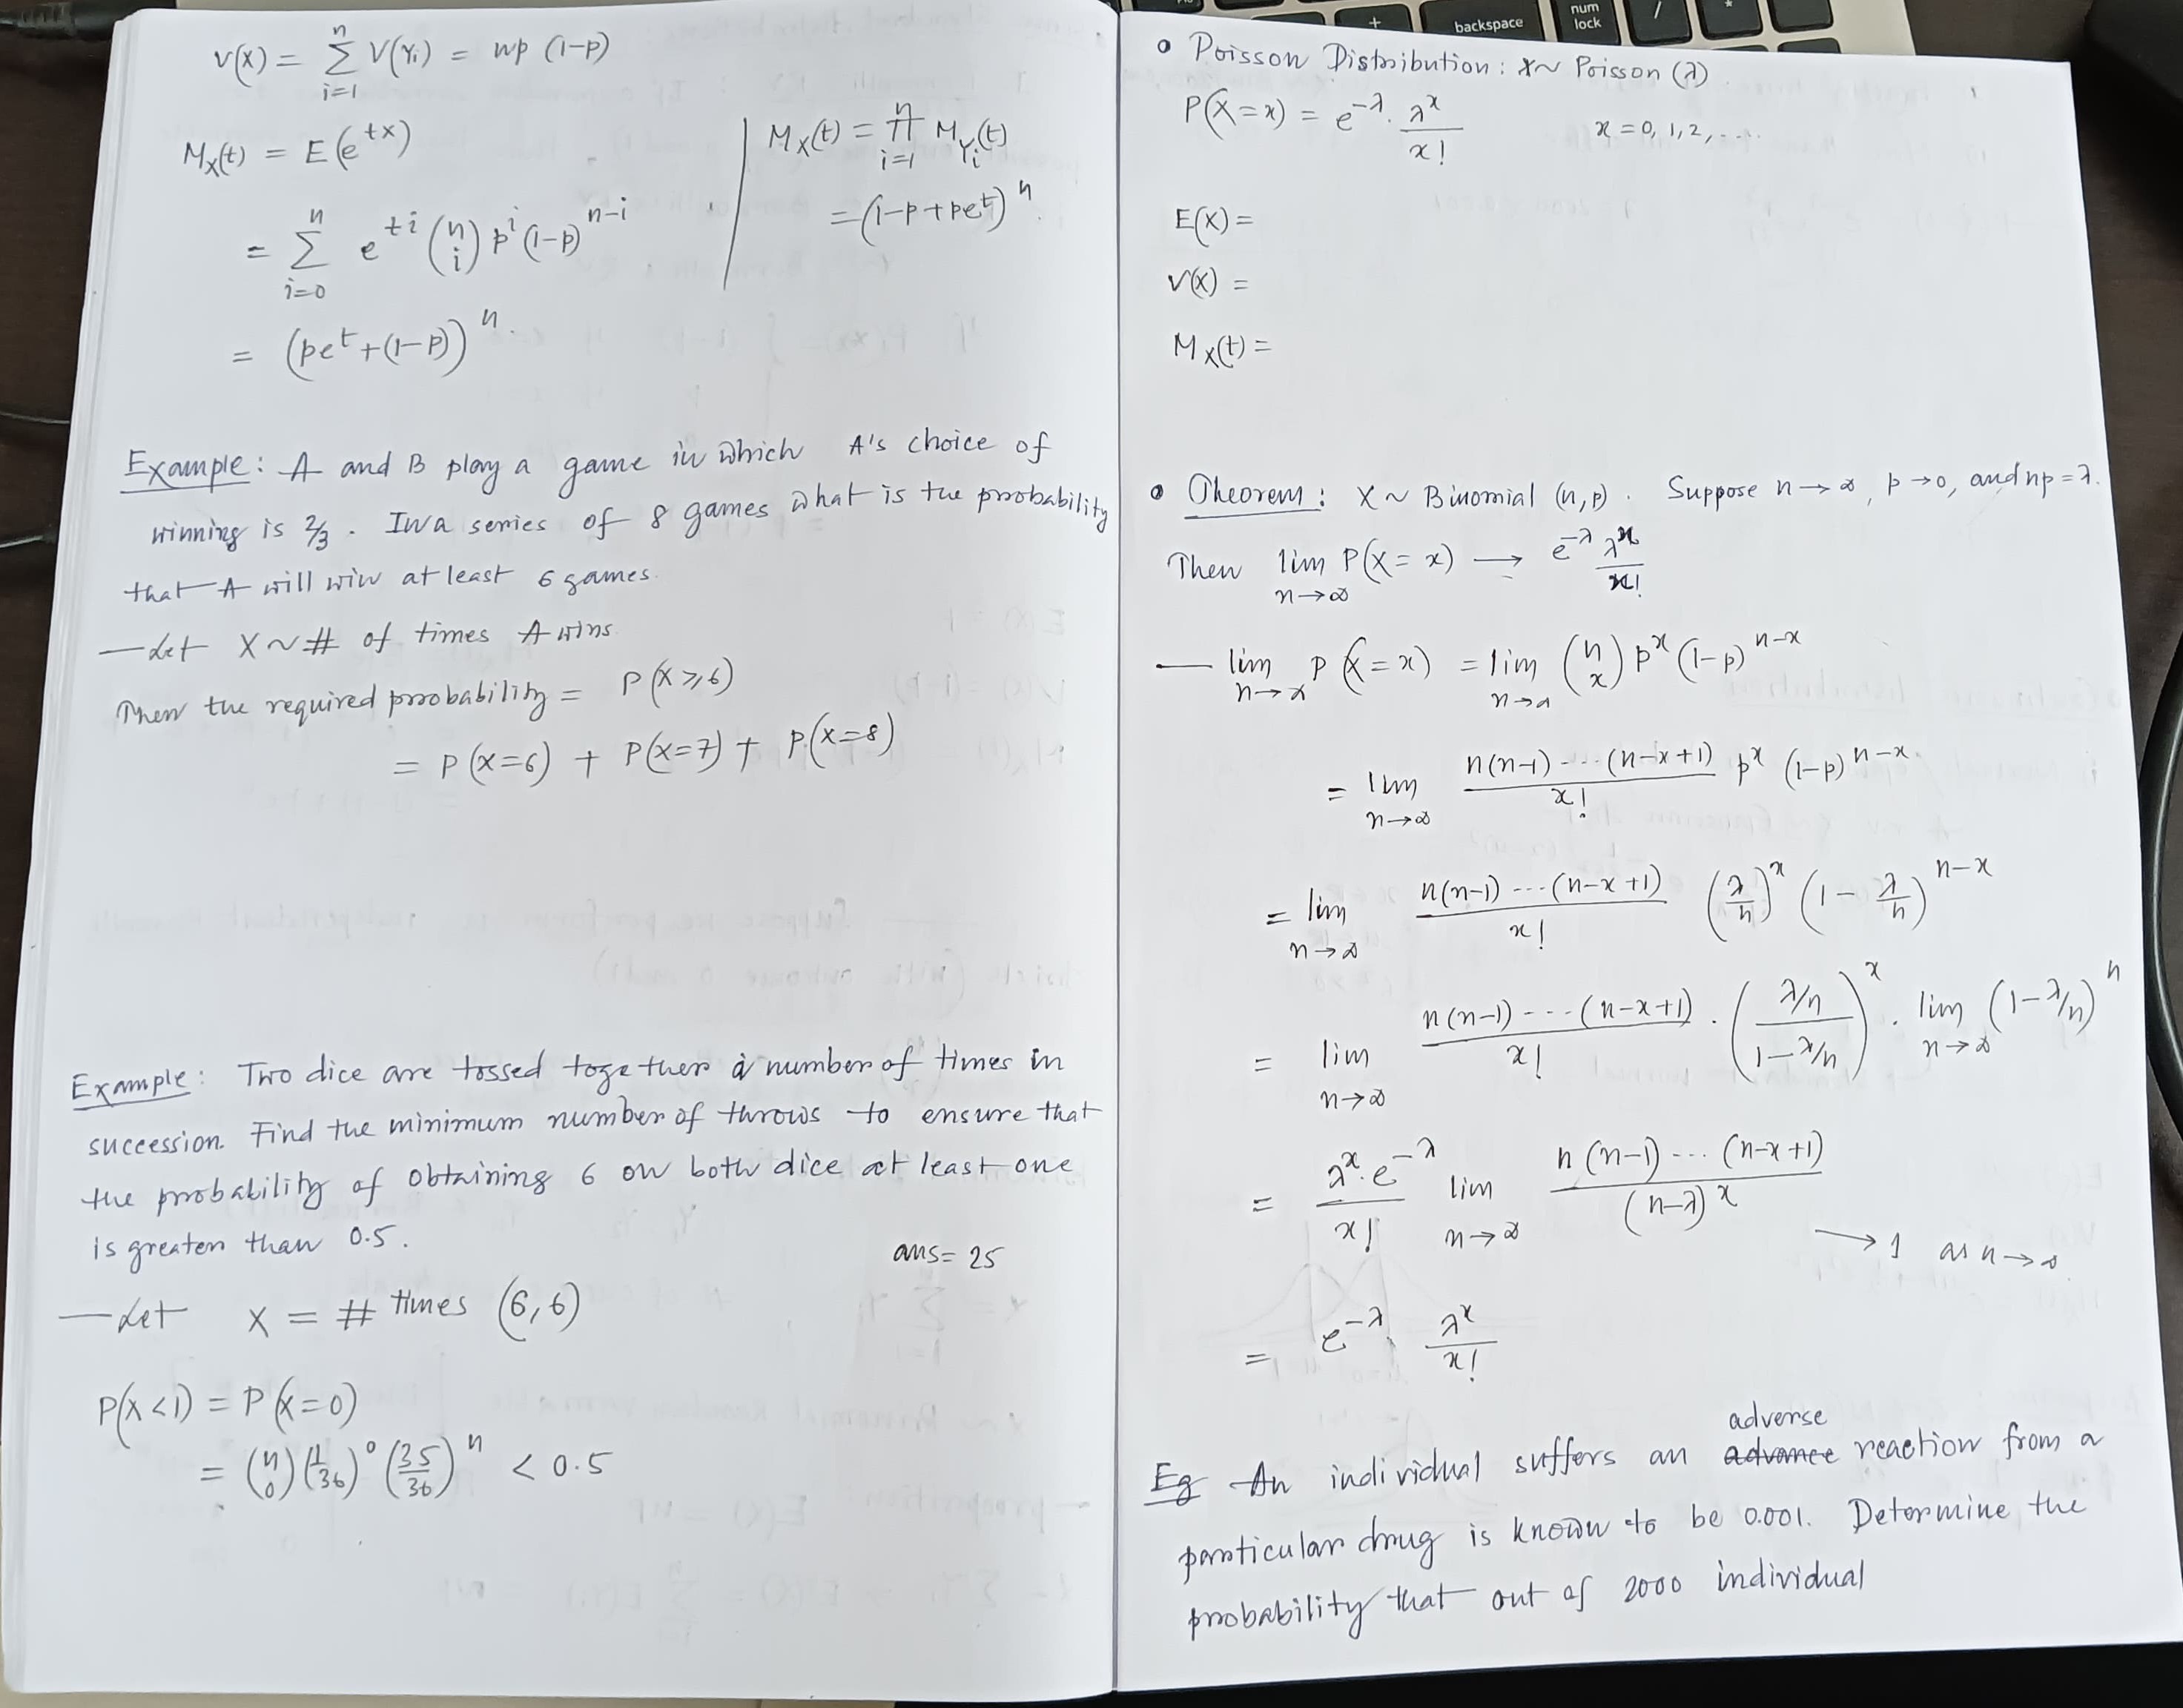 V(X) = ∑_{i=1}^{n} V(Y_i) = np (1-p)
M_X(t) = E(e^{tx})
= ∑_{i=0}^{n} e^{ti} (n i) p^i (1-p)^{n-i}
= (pe^t + (1-p))^n.
M_X(t) = ∏_{i=1}^{n} M_{Y_i}(t)
= (1-p+pe^t)^n.
Example: A and B play a game in which A's choice of
winning is 2/3. In a series of 8 games what is the probability
that A will win at least 6 games.
— Let X ~ # of times A wins
Then the required probability = P(X ⩾ 6)
= P(X=6) + P(X=7) + P(X=8)
Example: Two dice are tossed together a number of times in
succession. Find the minimum number of throws to ensure that
the probability of obtaining 6 on both dice at least one
is greater than 0.5.
ans = 25
— Let X = # times (6,6)
P(X<1) = P(X=0)
= (n 0) (1/36)^0 (35/36)^n < 0.5
• Poisson Distribution: X ~ Poisson (λ)
P(X=x) = e^{-λ} . λ^x / x! x = 0, 1, 2, ....
E(X) =
V(X) =
M_X(t) =
• Theorem: X ~ Binomial (n, p). Suppose n → ∞, p → 0, and np = λ.
Then lim_{n→∞} P(X = x) ⟶ e^{-λ} λ^x / x!
— lim_{n→∞} P(X = x) = lim_{n→∞} (n x) p^x (1-p)^{n-x}
= lim_{n→∞} n(n-1) .... (n-x+1) / x! p^x (1-p)^{n-x}
= lim_{n→∞} n(n-1) ... (n-x+1) / x! (λ/n)^x (1 - λ/n)^{n-x}
= lim_{n→∞} n(n-1) --- (n-x+1) / x! . (λ/n / 1-λ/n)^x . lim_{n→∞} (1-λ/n)^n
= λ^x . e^{-λ} / x! lim_{n→∞} n(n-1) ... (n-x+1) / (n-λ)^x ⟶ 1 as n → ∞
= e^{-λ} . λ^x / x!
adverse
Eg An individual suffers an advance reaction from a
particular drug is known to be 0.001. Determine the
probability that out of 2000 individual